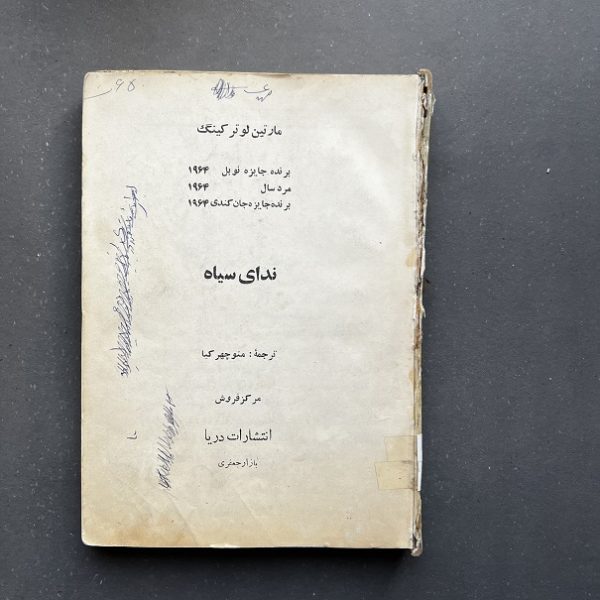 مارتین لوتر کینگ
برنده جایزه نوبل ۱۹۶۴
مرد سال ۱۹۶۴
برنده جایزه جان کندی ۱۹۶۴
ندای سیاه
ترجمهٔ: منوچهر کیا
مرکز فروش
انتشارات دریا
بازار جعفری